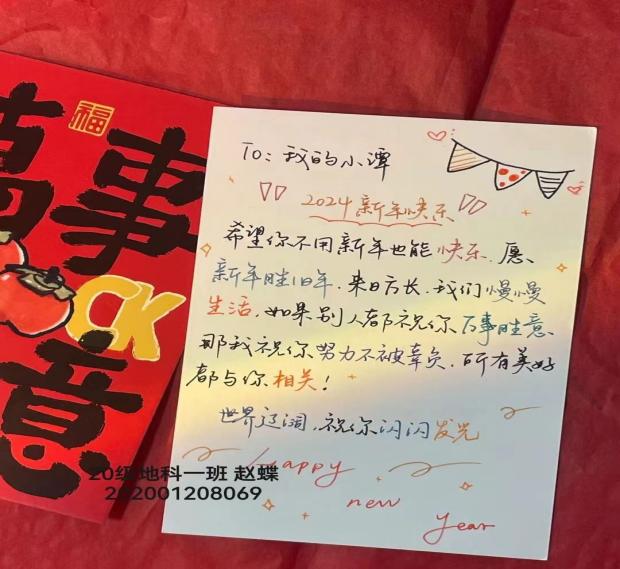 福
萬事
OK
意
To: 我的小潭
2024新年快乐
希望你不用新年也能快乐. 愿
新年胜旧年. 来日方长. 我们慢慢
生活. 如果别人都祝你万事胜意.
那我祝你努力不被辜负. 所有美好
都与你相关!
世界辽阔. 祝你闪闪发光
happy
new
year
20级地科一班 赵蝶
202001208069